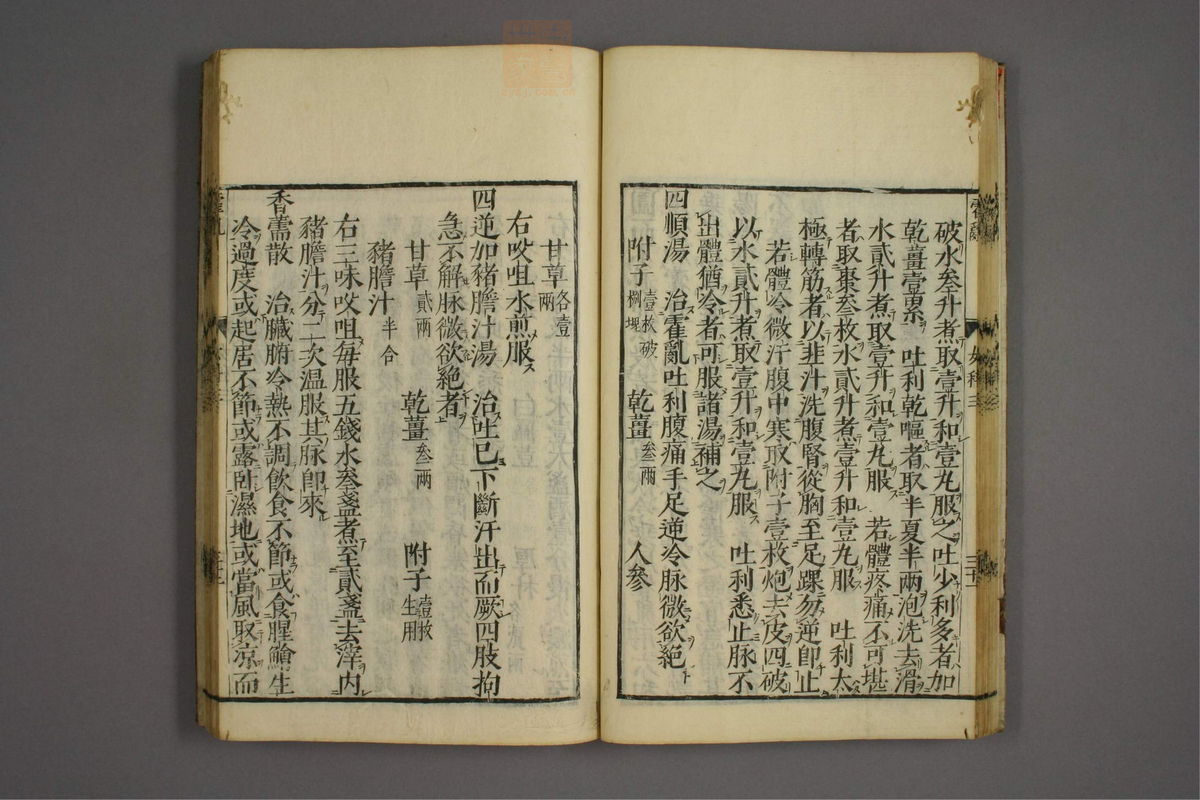 破水叁升煮取壹升和壹丸服之吐少利多者加
乾薑壹累　吐利乾嘔者取半夏半兩泡洗去滑
水貳升煮取壹升和壹丸服　若體疼痛不可堪
者取棗叁枚水貳升煮壹升和壹丸服　吐利太
極轉筋者以韭汁洗腹腎從胸至足踝勿逆卽止
若體冷微汗腹中寒取附子壹枚炮去皮四破
以水貳升煮取壹升和壹丸服　吐利悉止脉不
出體猶冷者可服諸湯補之
四順湯　治霍亂吐利腹痛手足逆冷脉微欲絶
附子壹枚破捌塊　乾薑叁兩　人參
甘草各壹兩
右㕮咀水煎服
四逆加豬膽汁湯　治吐已下斷汗出而厥四肢拘
急不解脉微欲絶者
甘草貳兩　乾薑叁兩　附子壹枚生用
豬膽汁半合
右三味㕮咀每服五錢水叁盞煮至貳盞去滓内
豬膽汁分二次温服其脉卽來
香薷散　治臟腑冷熱不調飲食不節或食腥鱠生
冷過度或起居不節或露臥濕地或當風取凉而